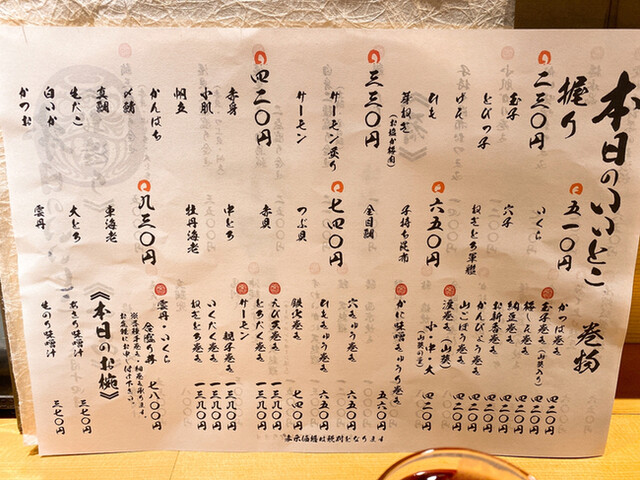 本日のいいとこ
握り
二三〇円
玉子
とびっ子
げそ
ひも
芽ねぎ
三三〇円
サーモン炙り
サーモン
四二〇円
赤身
小肌
帆立
かんぱち
〆鯖
真鯛
生だこ
白いか
かつお
五一〇円
いくら
穴子
ねぎとろ軍艦
六五〇円
子持ち昆布
金目鯛
七四〇円
つぶ貝
赤貝
中とろ
牡丹海老
八三〇円
車海老
大とろ
雲丹
巻物
かっぱ巻き 四二〇円
玉子巻き(山葵入り) 四二〇円
梅しそ巻き 四二〇円
納豆巻き 四二〇円
お新香巻き 四二〇円
かんぴょう巻き 四二〇円
山ごぼう巻き 四二〇円
涙巻き(山葵) 四二〇円
小・中・大
かに味噌きゅうり巻き 五六〇円
穴きゅう巻き 六五〇円
ひもきゅう巻き 六五〇円
鉄火巻き 七四〇円
えび天巻き 一三八〇円
とろたく巻き 一三八〇円
サーモン
親子巻き 一三八〇円
いくたく巻き 一三八〇円
ねぎとろ巻き 一三八〇円
雲丹・いくら
全盛り丼 七八〇〇円
※各種手巻き・細巻も承ります。
お気軽にお申し付け下さい。
《本日のお椀》
あさり味噌汁 三七〇円
生のり味噌汁 三七〇円
表示価格は税別となります